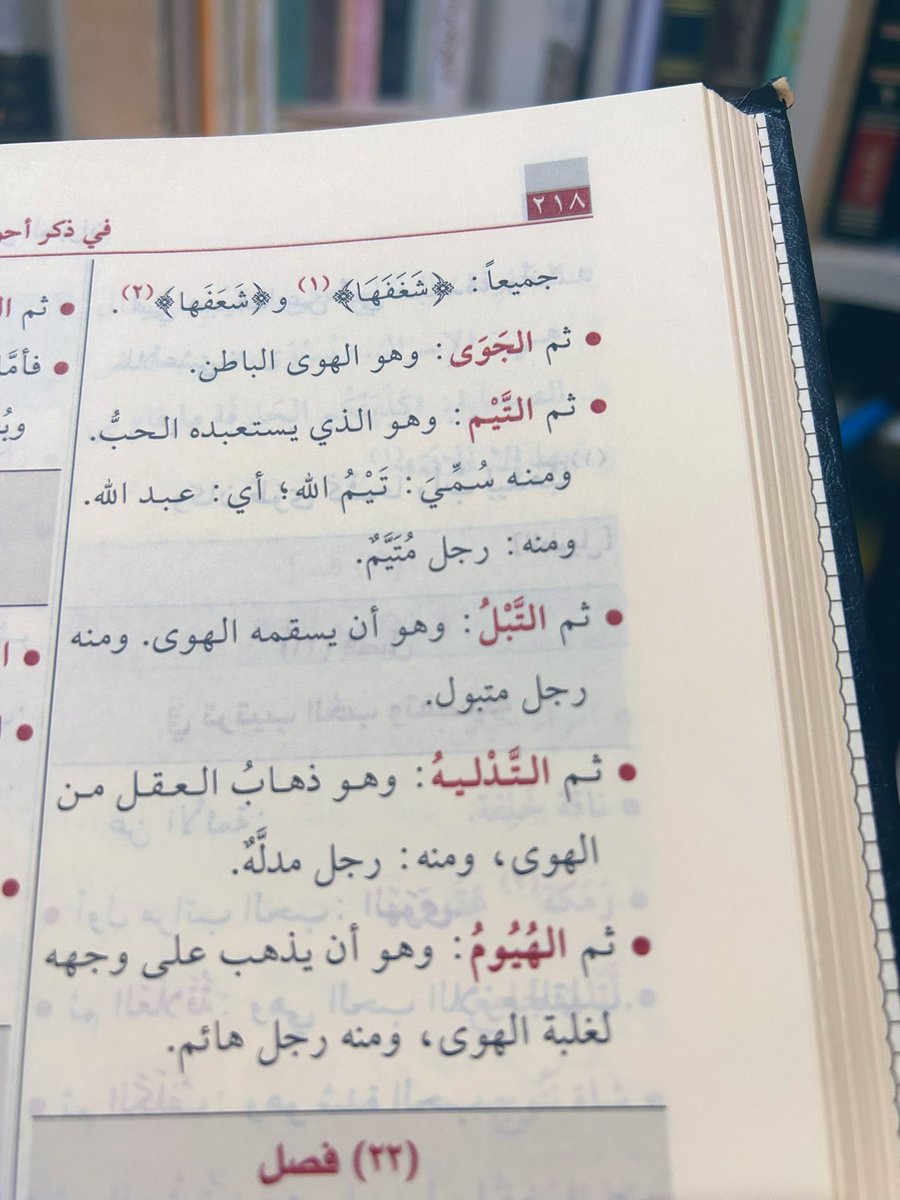 ٢١٨
في ذكر
جميعاً: ﴿شَغَفَهَا﴾(١) و﴿شَعَفَها﴾(٢).
• ثم الجَوَى: وهو الهوى الباطن.
• ثم التَّيْم: وهو الذي يستعبده الحبُّ.
ومنه سُمِّيَ: تَيْمُ الله؛ أي: عبد الله.
ومنه: رجل مُتَيَّمٌ.
• ثم التَّبْلُ: وهو أن يسقمه الهوى. ومنه
رجل متبول.
• ثم التَّدْليهُ: وهو ذهابُ العقل من
الهوى، ومنه: رجل مدلَّهٌ.
• ثم الهُيُومُ: وهو أن يذهب على وجهه
لغلبة الهوى، ومنه رجل هائم.
(٢٢) فصل
• ثم
• فأمَّا